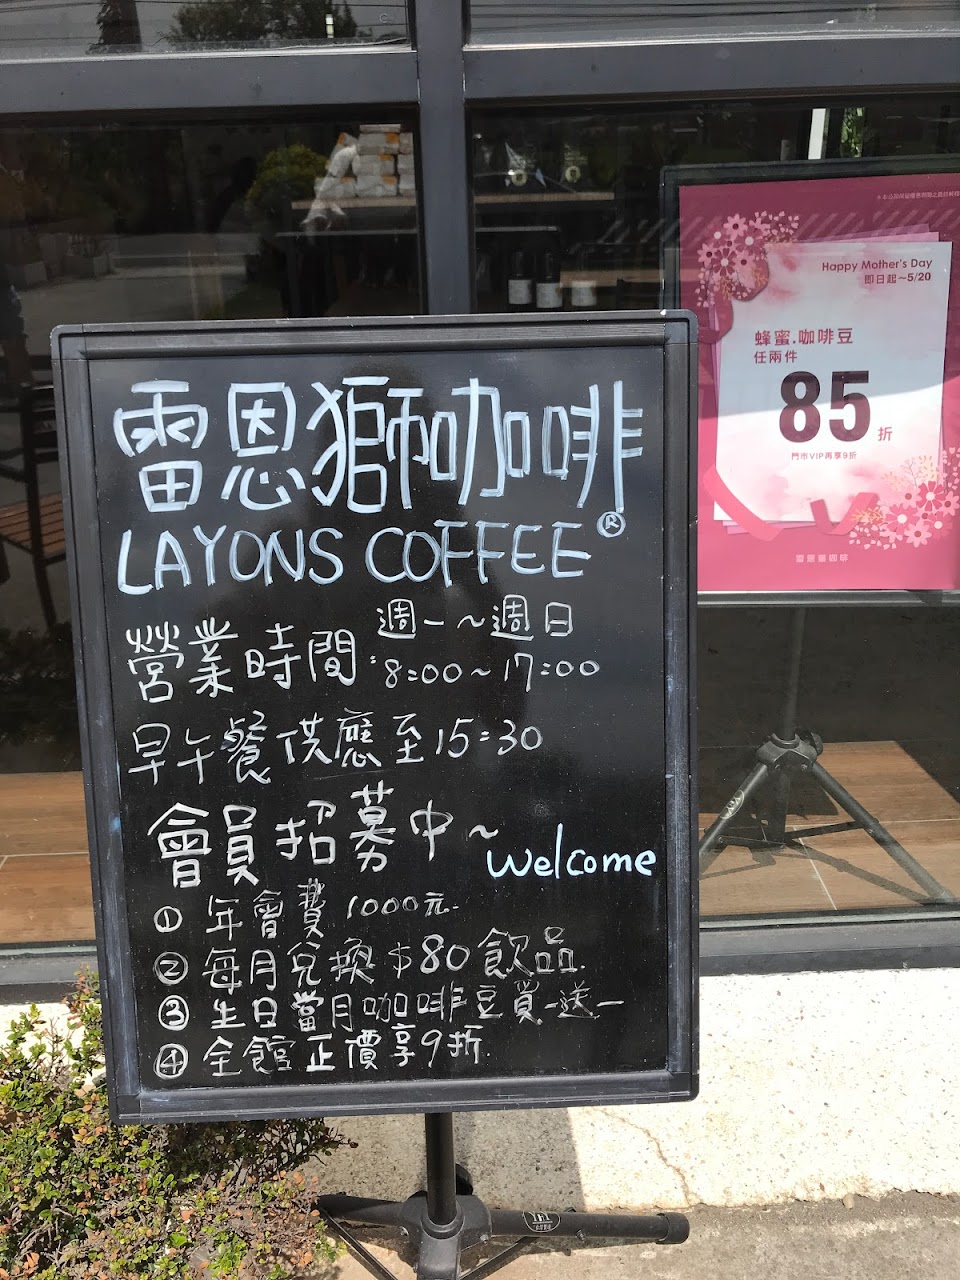 雷恩獅咖啡
LAYONS COFFEE®
營業時間: 週一~週日
8:00~17:00
早午餐供應至15:30
會員招募中~
welcome
① 年會費1000元.
② 每月兌換$80飲品.
③ 生日當月咖啡豆買一送一
④ 全館正價享9折.
Happy Mother's Day
即日起~5/20
蜂蜜.咖啡豆
任兩件
85折
門市VIP再享9折
雷恩獅咖啡